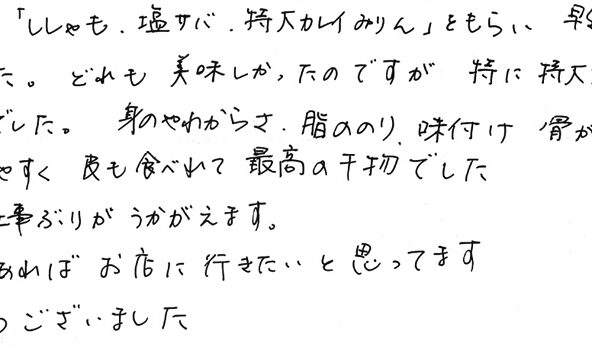 「ししゃも、塩サバ、特大カレイみりん」をもらい 早
た。どれも美味しかったのですが 特に 特大
でした。 身のやわからさ、脂ののり、味付け 骨が
やすく 皮も食べれて 最高の干物でした
仕事ぶりが うかがえます。
あれば お店に 行きたいと思ってます
うございました